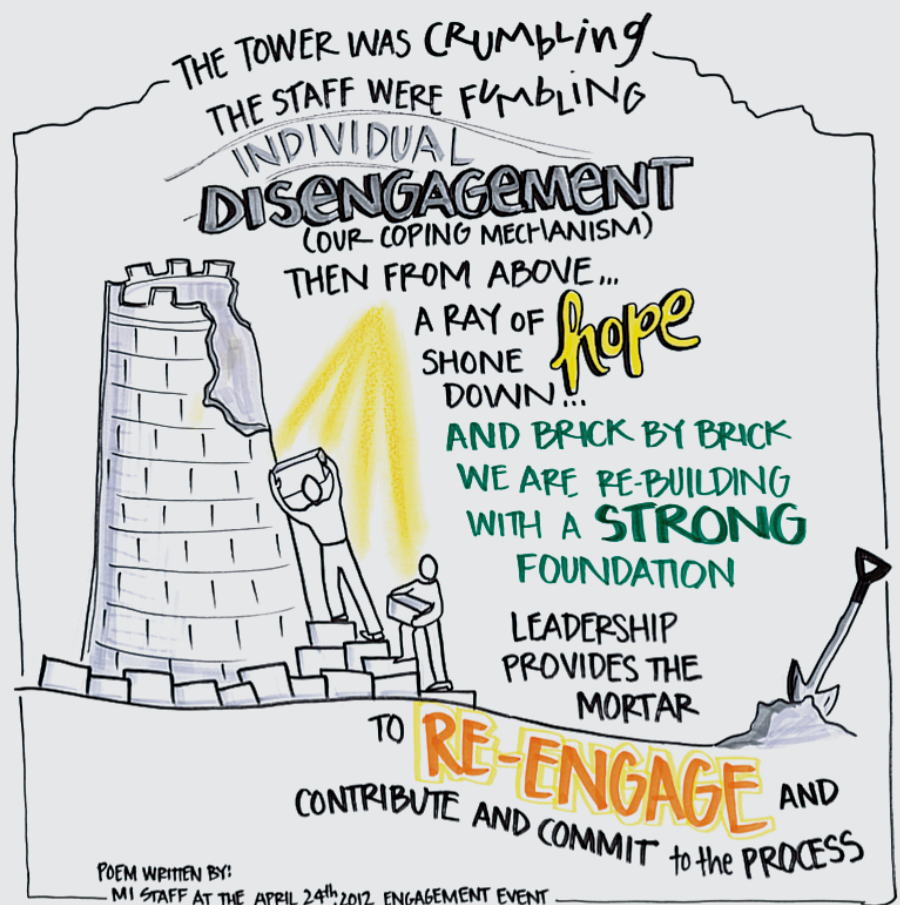 THE TOWER WAS CRUMbLing
THE STAFF WERE FUMbLiNG
INDIVIDUAL
DISeNGAGeMeNT
(OUR COPING MECHANISM)
THEN FROM ABOVE...
A RAY OF hope
SHONE
DOWN!...
AND BRICK BY BRICK
WE ARE RE-BUILDING
WITH A STRONG
FOUNDATION
LEADERSHIP
PROVIDES THE
MORTAR
TO RE-ENGAGE AND
CONTRIBUTE AND COMMIT to the PROCESS
POEM WRITTEN BY:
MI STAFF AT THE APRIL 24th, 2012 ENGAGEMENT EVENT